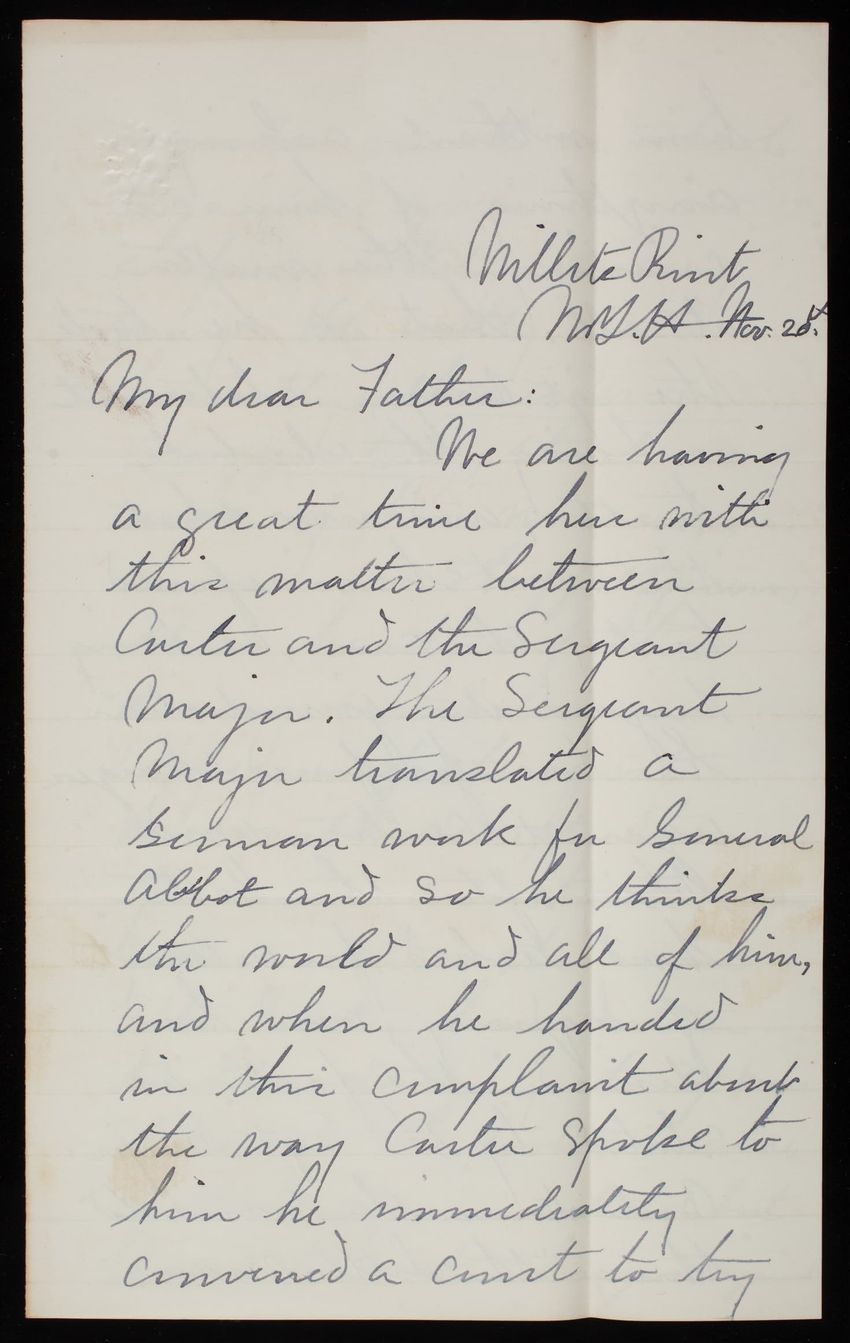 Willets Point
N.Y.H. Nov. 28th
My dear Father:
We are having
a great time here with
this matter between
Carter and the Sergeant
Major. The Sergeant
Major translated a
German work for General
Abbot and so he thinks
the world and all of him,
and when he handed
in this complaint about
the way Carter spoke to
him he immediately
convened a court to try